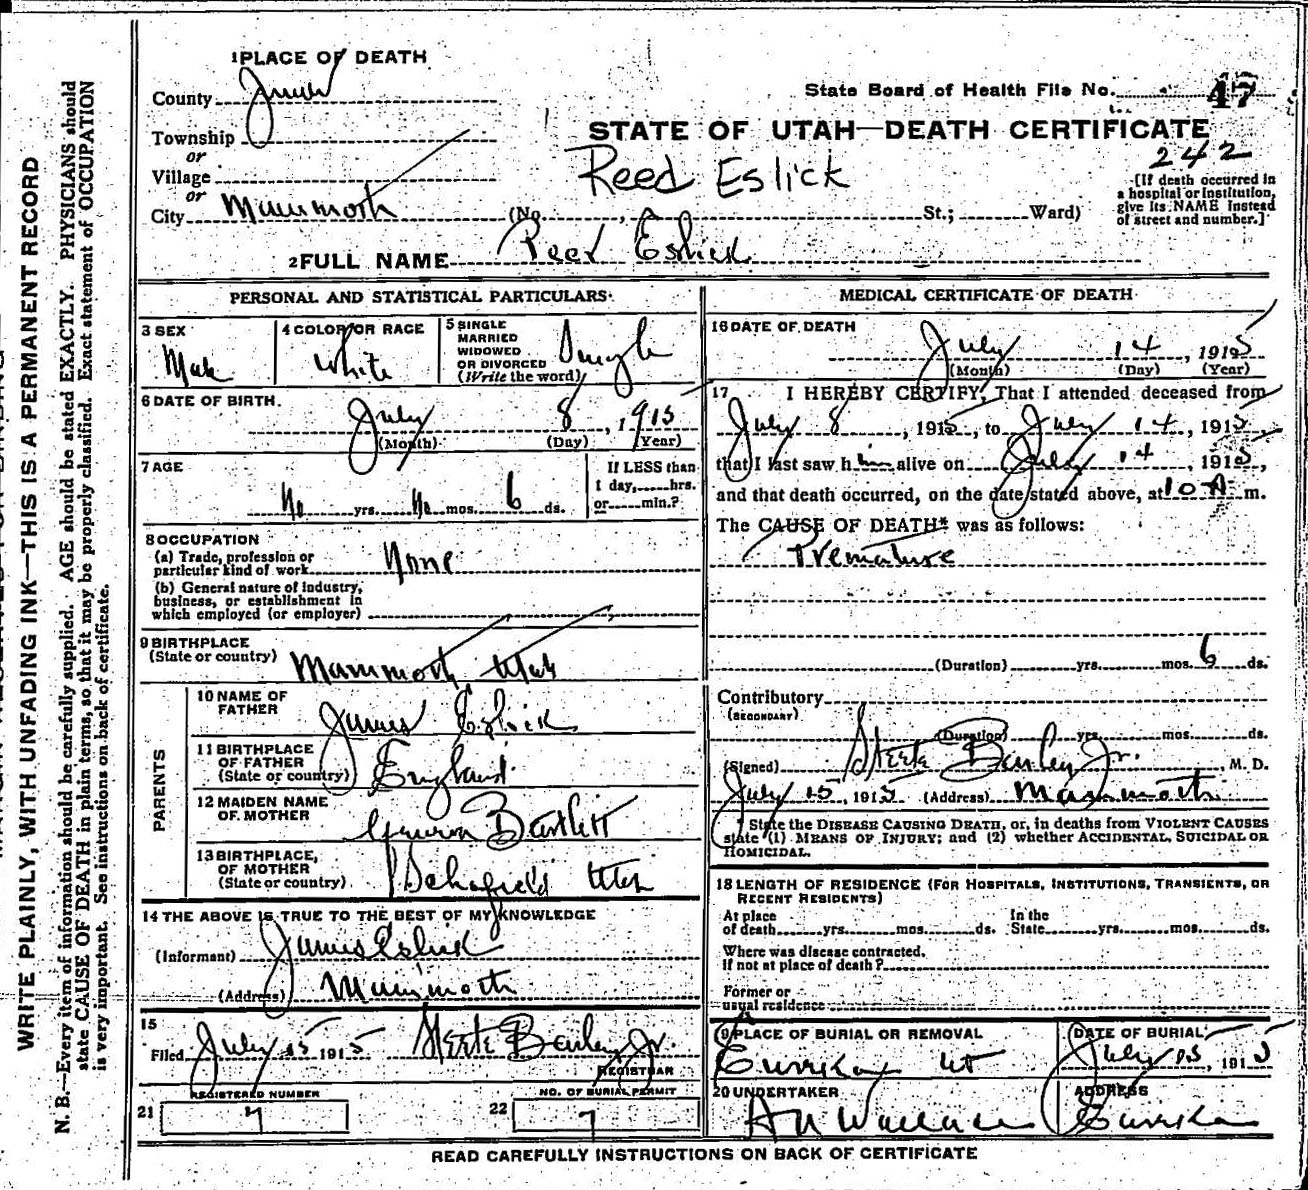 1 PLACE OF DEATH
County
State Board of Health File No. 47
Township
or
Village
or
City Mammoth
STATE OF UTAH—DEATH CERTIFICATE
242
Reed Eslick
[If death occurred in
a hospital or institution,
give its NAME instead
of street and number.]
(No. St.; Ward)
2 FULL NAME Reed Eslick
PERSONAL AND STATISTICAL PARTICULARS
3 SEX
Male
4 COLOR OR RACE
White
5 SINGLE
MARRIED
WIDOWED
OR DIVORCED
(Write the word)
Single
6 DATE OF BIRTH
July 8, 1915
(Month) (Day) (Year)
7 AGE
No yrs. No mos. 6 ds.
If LESS than
1 day, hrs.
or min.?
8 OCCUPATION
(a) Trade, profession or
particular kind of work None
(b) General nature of industry,
business, or establishment in
which employed (or employer)
9 BIRTHPLACE
(State or country) Mammoth Utah
PARENTS
10 NAME OF
FATHER James Eslick
11 BIRTHPLACE
OF FATHER
(State or country) England
12 MAIDEN NAME
OF MOTHER Bartlett
13 BIRTHPLACE,
OF MOTHER
(State or country) Utah
14 THE ABOVE IS TRUE TO THE BEST OF MY KNOWLEDGE
(Informant) James Eslick
(Address) Mammoth
15
Filed July 15 1915 Steele Bailey Jr.
REGISTRAR
REGISTERED NUMBER
21 7
NO. OF BURIAL PERMIT
22 7
MEDICAL CERTIFICATE OF DEATH
16 DATE OF DEATH
July 14, 1915
(Month) (Day) (Year)
17 I HEREBY CERTIFY, That I attended deceased from
July 8, 1915, to July 14, 1915,
that I last saw him alive on July 14, 1915,
and that death occurred, on the date stated above, at 10 A m.
The CAUSE OF DEATH* was as follows:
Premature
(Duration) yrs. mos. 6 ds.
Contributory
(SECONDARY)
(Duration) yrs. mos. ds.
(Signed) Steele Bailey Jr. M. D.
July 15, 1915 (Address) Mammoth
* State the DISEASE CAUSING DEATH, or, in deaths from VIOLENT CAUSES
state (1) MEANS OF INJURY; and (2) whether ACCIDENTAL, SUICIDAL OR
HOMICIDAL.
18 LENGTH OF RESIDENCE (FOR HOSPITALS, INSTITUTIONS, TRANSIENTS, OR
RECENT RESIDENTS)
At place
of death yrs. mos. ds.
In the
State yrs. mos. ds.
Where was disease contracted,
If not at place of death?
Former or
usual residence
19 PLACE OF BURIAL OR REMOVAL
Eureka Ut
DATE OF BURIAL
July 15, 1915
20 UNDERTAKER
Wallace
ADDRESS
Eureka
READ CAREFULLY INSTRUCTIONS ON BACK OF CERTIFICATE
WRITE PLAINLY, WITH UNFADING INK—THIS IS A PERMANENT RECORD
N. B.—Every item of information should be carefully supplied. AGE should be stated EXACTLY. PHYSICIANS should
state CAUSE OF DEATH in plain terms, so that it may be properly classified. Exact statement of OCCUPATION
is very important. See instructions on back of certificate.